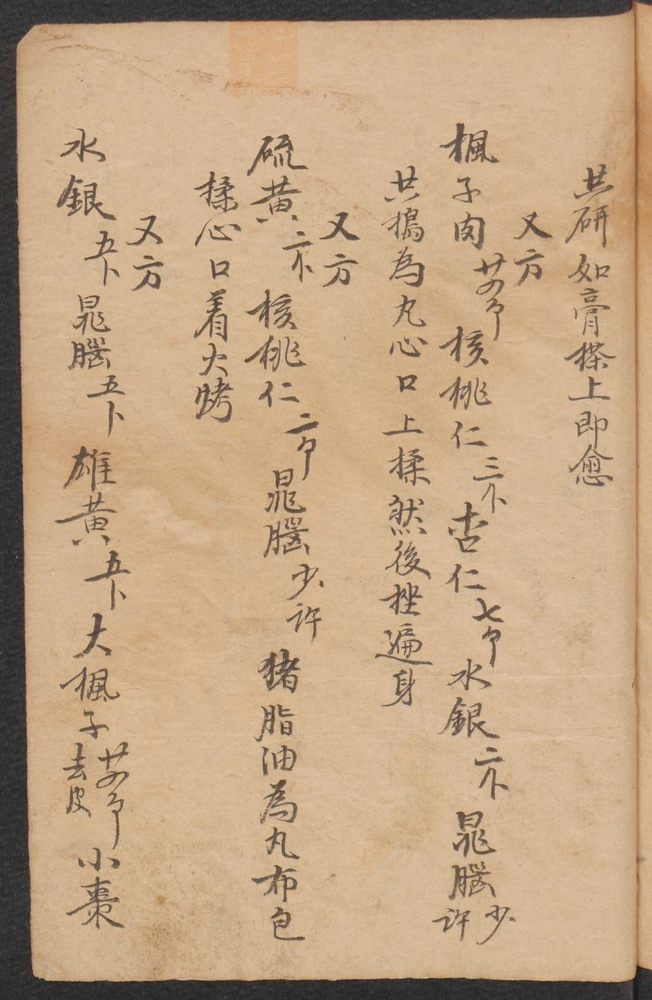 共研如膏搽上即愈
又方
楓子肉 廿四个 核桃仁 三个 杏仁 七个 水銀 二个 晁腦 少許
共搗為丸心口上揉然後挫遍身
又方
硫黄 二个 核桃仁 二个 晁腦 少許 猪脂油為丸布包
揉心口着火烤
又方
水銀 五卜 晁腦 五卜 雄黄 五卜 大楓子 廿四个 去皮 小棗